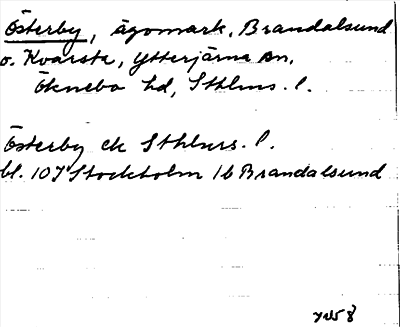 Österby, ägomark, Brandalsund
o. Kvarsta, Ytterjärna sn,
Öknebo hd, Sthlms. l.
Österby ek Sthlms. l.
bl. 10I Stockholm 1b Brandalsund